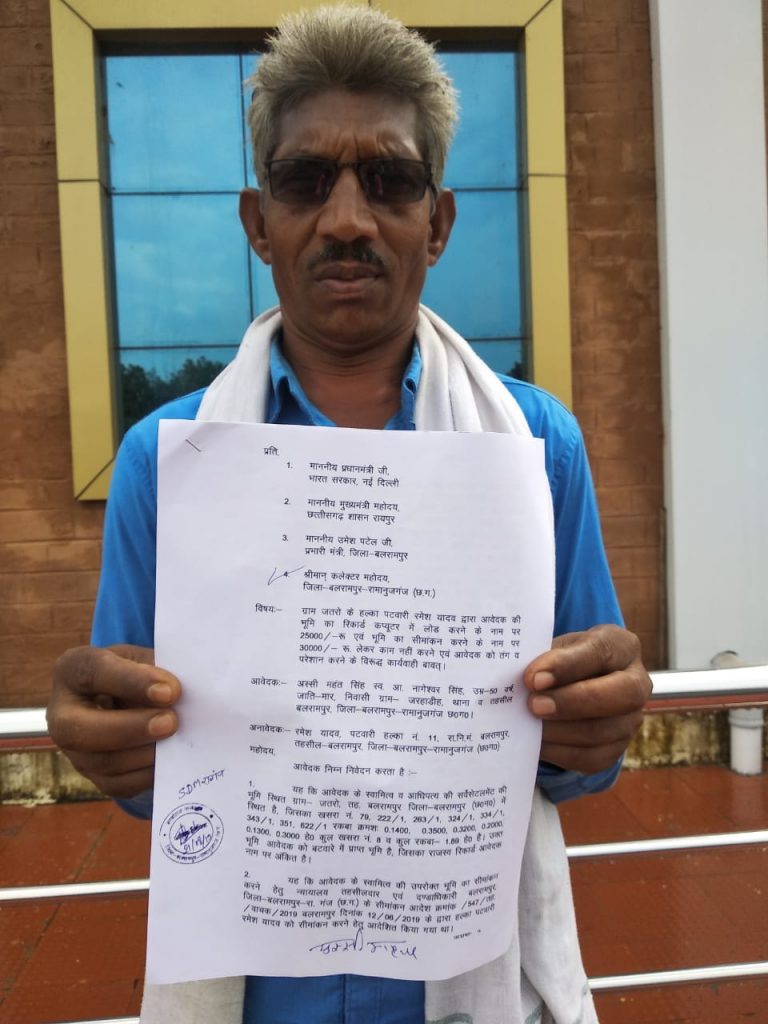 प्रति,
1. माननीय प्रधानमंत्री जी,
भारत सरकार, नई दिल्ली
2. माननीय मुख्यमंत्री महोदय,
छत्तीसगढ़ शासन रायपुर
3. माननीय उमेश पटेल जी,
प्रभारी मंत्री, जिला-बलरामपुर
4. श्रीमान् कलेक्टर महोदय,
जिला-बलरामपुर-रामानुजगंज (छ.ग.)
विषय:- ग्राम जतरो के हल्का पटवारी रमेश यादव द्वारा आवेदक की
भूमि का रिकार्ड कंप्यूटर में लोड करने के नाम पर
25000/-रू एवं भूमि का सीमांकन करने के नाम पर
30000/- रू. लेकर काम नहीं करने एवं आवेदक को तंग व
परेशान करने के विरूद्ध कार्यवाही बाबत्।
आवेदक:- अस्सी महंत सिंह स्व. आ. नागेश्वर सिंह, उम्र-50 वर्ष,
जाति-मार, निवासी ग्राम- जरहाडीह, थाना व तहसील
बलरामपुर, जिला-बलरामपुर-रामानुजगंज छ0ग0।
अनावेदक:- रमेश यादव, पटवारी हल्का नं. 11, रा.नि.मं. बलरामपुर,
तहसील-बलरामपुर, जिला-बलरामपुर-रामानुजगंज (छ0ग0)
महोदय,
आवेदक निम्न निवेदन करता है :-
1. यह कि आवेदक के स्वामित्व व आधिपत्य की सर्वेसेटलमेंट की
भूमि स्थित ग्राम- जतरो, तह. बलरामपुर जिला-बलरामपुर (छ0ग0) में
स्थित है, जिसका खसरा नं. 79, 222/1, 263/1, 324/1, 334/1,
343/1, 351, 622/1 रकबा क्रमशः 0.1400, 0.3500, 0.3200, 0.2000,
0.1300, 0.3000 हे0 कुल खसरा नं. 8 व कुल रकबा- 1.69 हे0 है। उक्त
भूमि आवेदक को बटवारे में प्राप्त भूमि है, जिसका राजस्व रिकार्ड आवेदक
नाम पर अंकित है।
2. यह कि आवेदक के स्वामित्व की उपरोक्त भूमि का सीमांकन
करने हेतु न्यायालय तहसीलदार एवं दण्डाधिकारी बलरामपुर,
जिला-बलरामपुर-रा. गंज (छ.ग.) के सीमांकन आदेश क्रमांक /547/तह.
/वाचक/2019 बलरामपुर दिनांक 12/06/2019 के द्वारा हल्का पटवारी
रमेश यादव को सीमांकन करने हेतु आदेशित किया गया था।
SDM रागंज